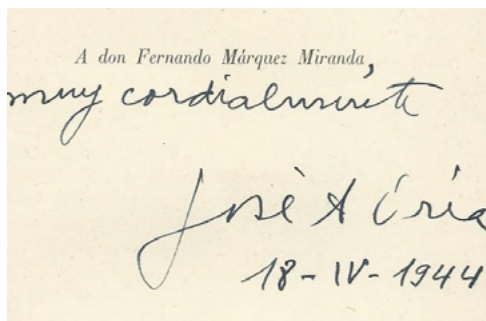 A don Fernando Márquez Miranda,
muy cordialmente
José A Oría
18-IV-1944